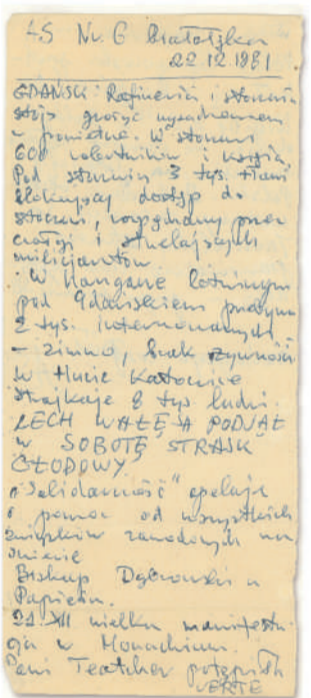 LS Nr. 6 Białołęka
22.12.1981
GDAŃSK: Rafineria i stocznia
stoją grożąc wysadzeniem
w powietrze. W stoczni
600 robotników i
Pod stocznią 3 tys. tłum
blokujący dostęp do
stoczni, rozpychany przez
czołgi i strzelających
milicjantów.
W Hangarze lotniczym
pod Gdańskiem
2 tys. internowanych
- zimno, brak żywności.
W Hucie Katowice
strajkuje 8 tys ludzi.
LECH WAŁĘSA PODJĄŁ
w SOBOTĘ STRAJK
GŁODOWY.
"Solidarność" apeluje
o pomoc od wszystkich
związków zawodowych na
świecie
Biskup Dąbrowski u
Papieża.
21.XII wielka manifesta-
cja w Monachium.
Pani Teatcher potępiła
VERTE